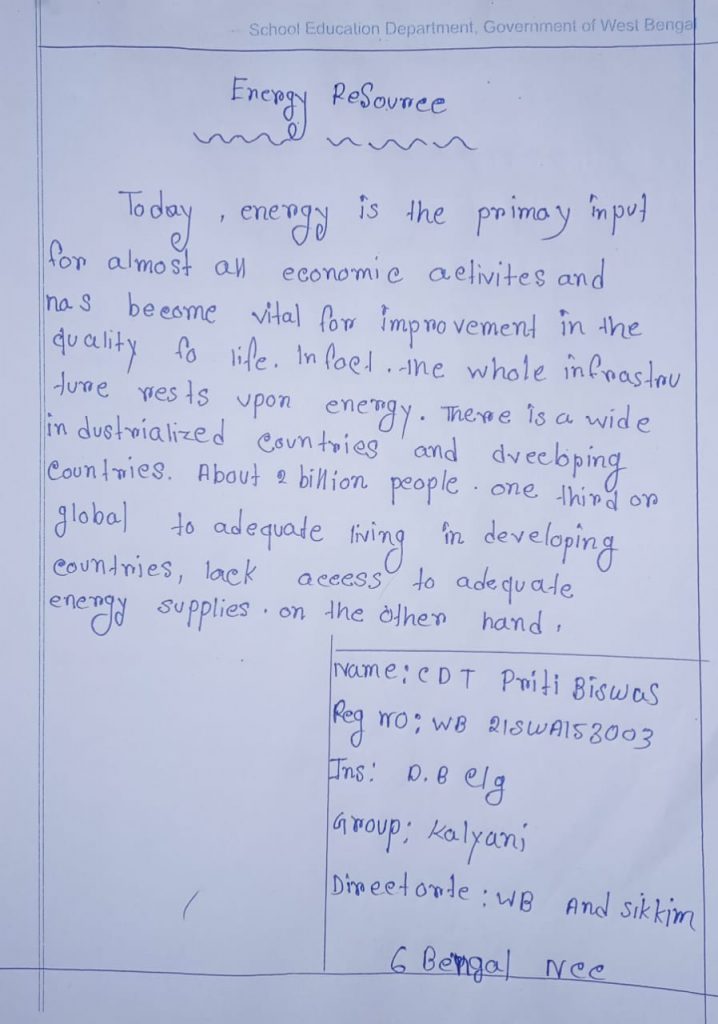 School Education Department, Government of West Bengal
Energy Resource
Today, energy is the primay input
for almost all economic aetivites and
has become vital for improvement in the
quality fo life. In fact. the whole infrastru
ture rests upon energy. There is a wide
industrialized countries and dveebping
countries. About 2 billion people. one third on
global to adequate living in developing
countries, lack access to adequate
energy supplies. on the other hand,
Name: CDT Priti Biswas
Reg no: WB 21SWA153003
Ins: D.B clg
Group: Kalyani
Direetorte: WB And sikkim
6 Bengal Ncc